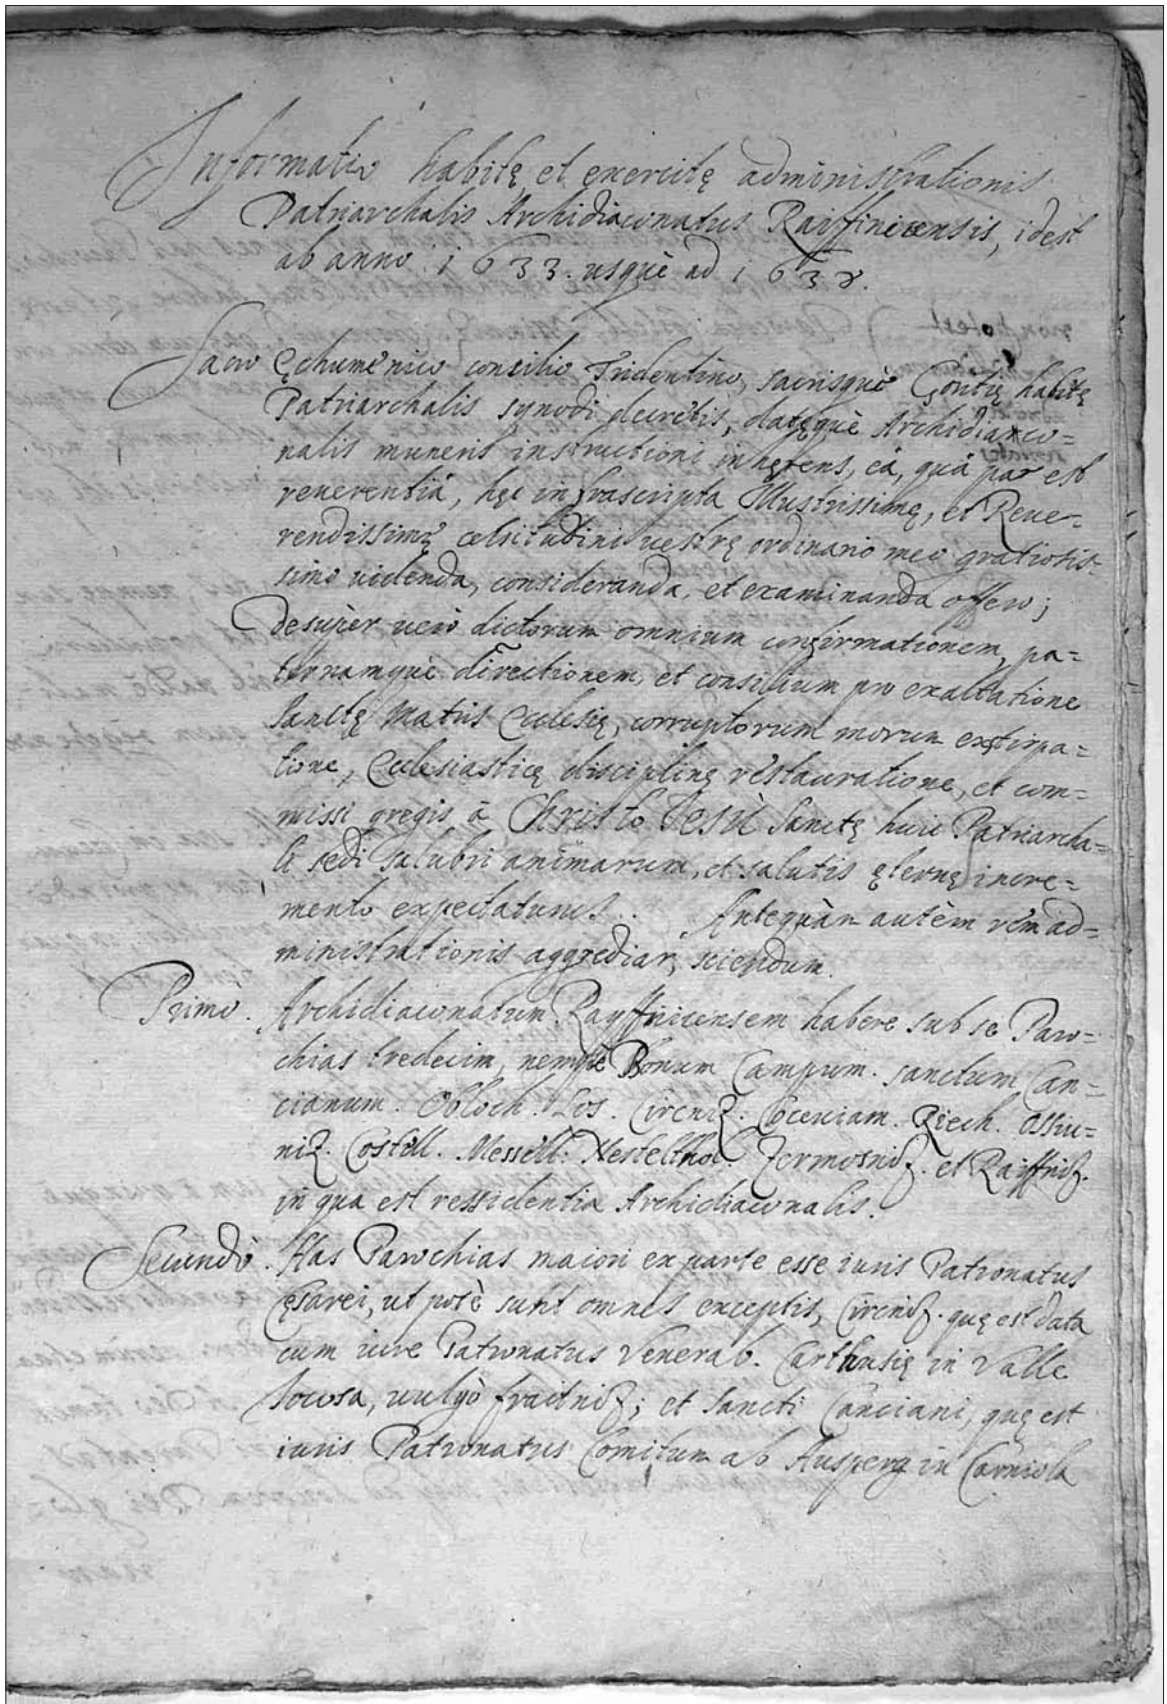 Informatio habitę et exercitę administrationis
Patriarchalis Archidiaconatus Raiffnicensis, idest
ab anno 1633. usquè ad 1638.
Sacro Ęchumenico concilio Tridentino, sacrisquè Goritię habitę
Patriarchalis synodi decretis, datęquè Archidiaco=
nalis muneris instructioni inhęrens, eà, quà par est
reuerentià, hęc infrascripta Illustrissimę, et Reue=
rendissimę celsitudini uestrę ordinario meo gratiosis=
simo uidenda, consideranda, et examinanda offero;
Desupèr uerò dictorum omnium confirmationem, pa=
ternamquè directionem, et consilium pro exaltatione
Sanctę Matris Ecclesię, corruptorum morum extirpa=
tione, Ecclesiasticę disciplinę restauratione, et com=
missi gregis à Christo Jesù Sanctę huic Patriarcha=
li sedi salubri animarum, et salutis ęternę incre=
mento expectaturus. Antequàm autèm rem ad=
ministrationis aggrediar, sciendum.
Primò. Archidiaconatum Rayffnicensem habere sub se Paro=
chias tredecim, nempè Bonum Campum. sanctum Can=
cianum. Obloch. Los. Circniz. Coceuiam. Riech. Ossiu=
niz. Costell. Messell. Nestelthal. Zermosniz. et Raiffniz.
in qua est ressidentia Archidiaconalis.
Secundò. Has Parochias maiori ex parte esse iuris Patronatus
Cęsarei, ut potè sunt omnes exceptis, Circniz. quę est data
cum iure Patronatus Venerab. Carthusię in Valle
Iocosa, uulgò fraitniz; et Sancti Canciani, quę est
iuris Patronatus Comitum ab Ausperg in Carniola